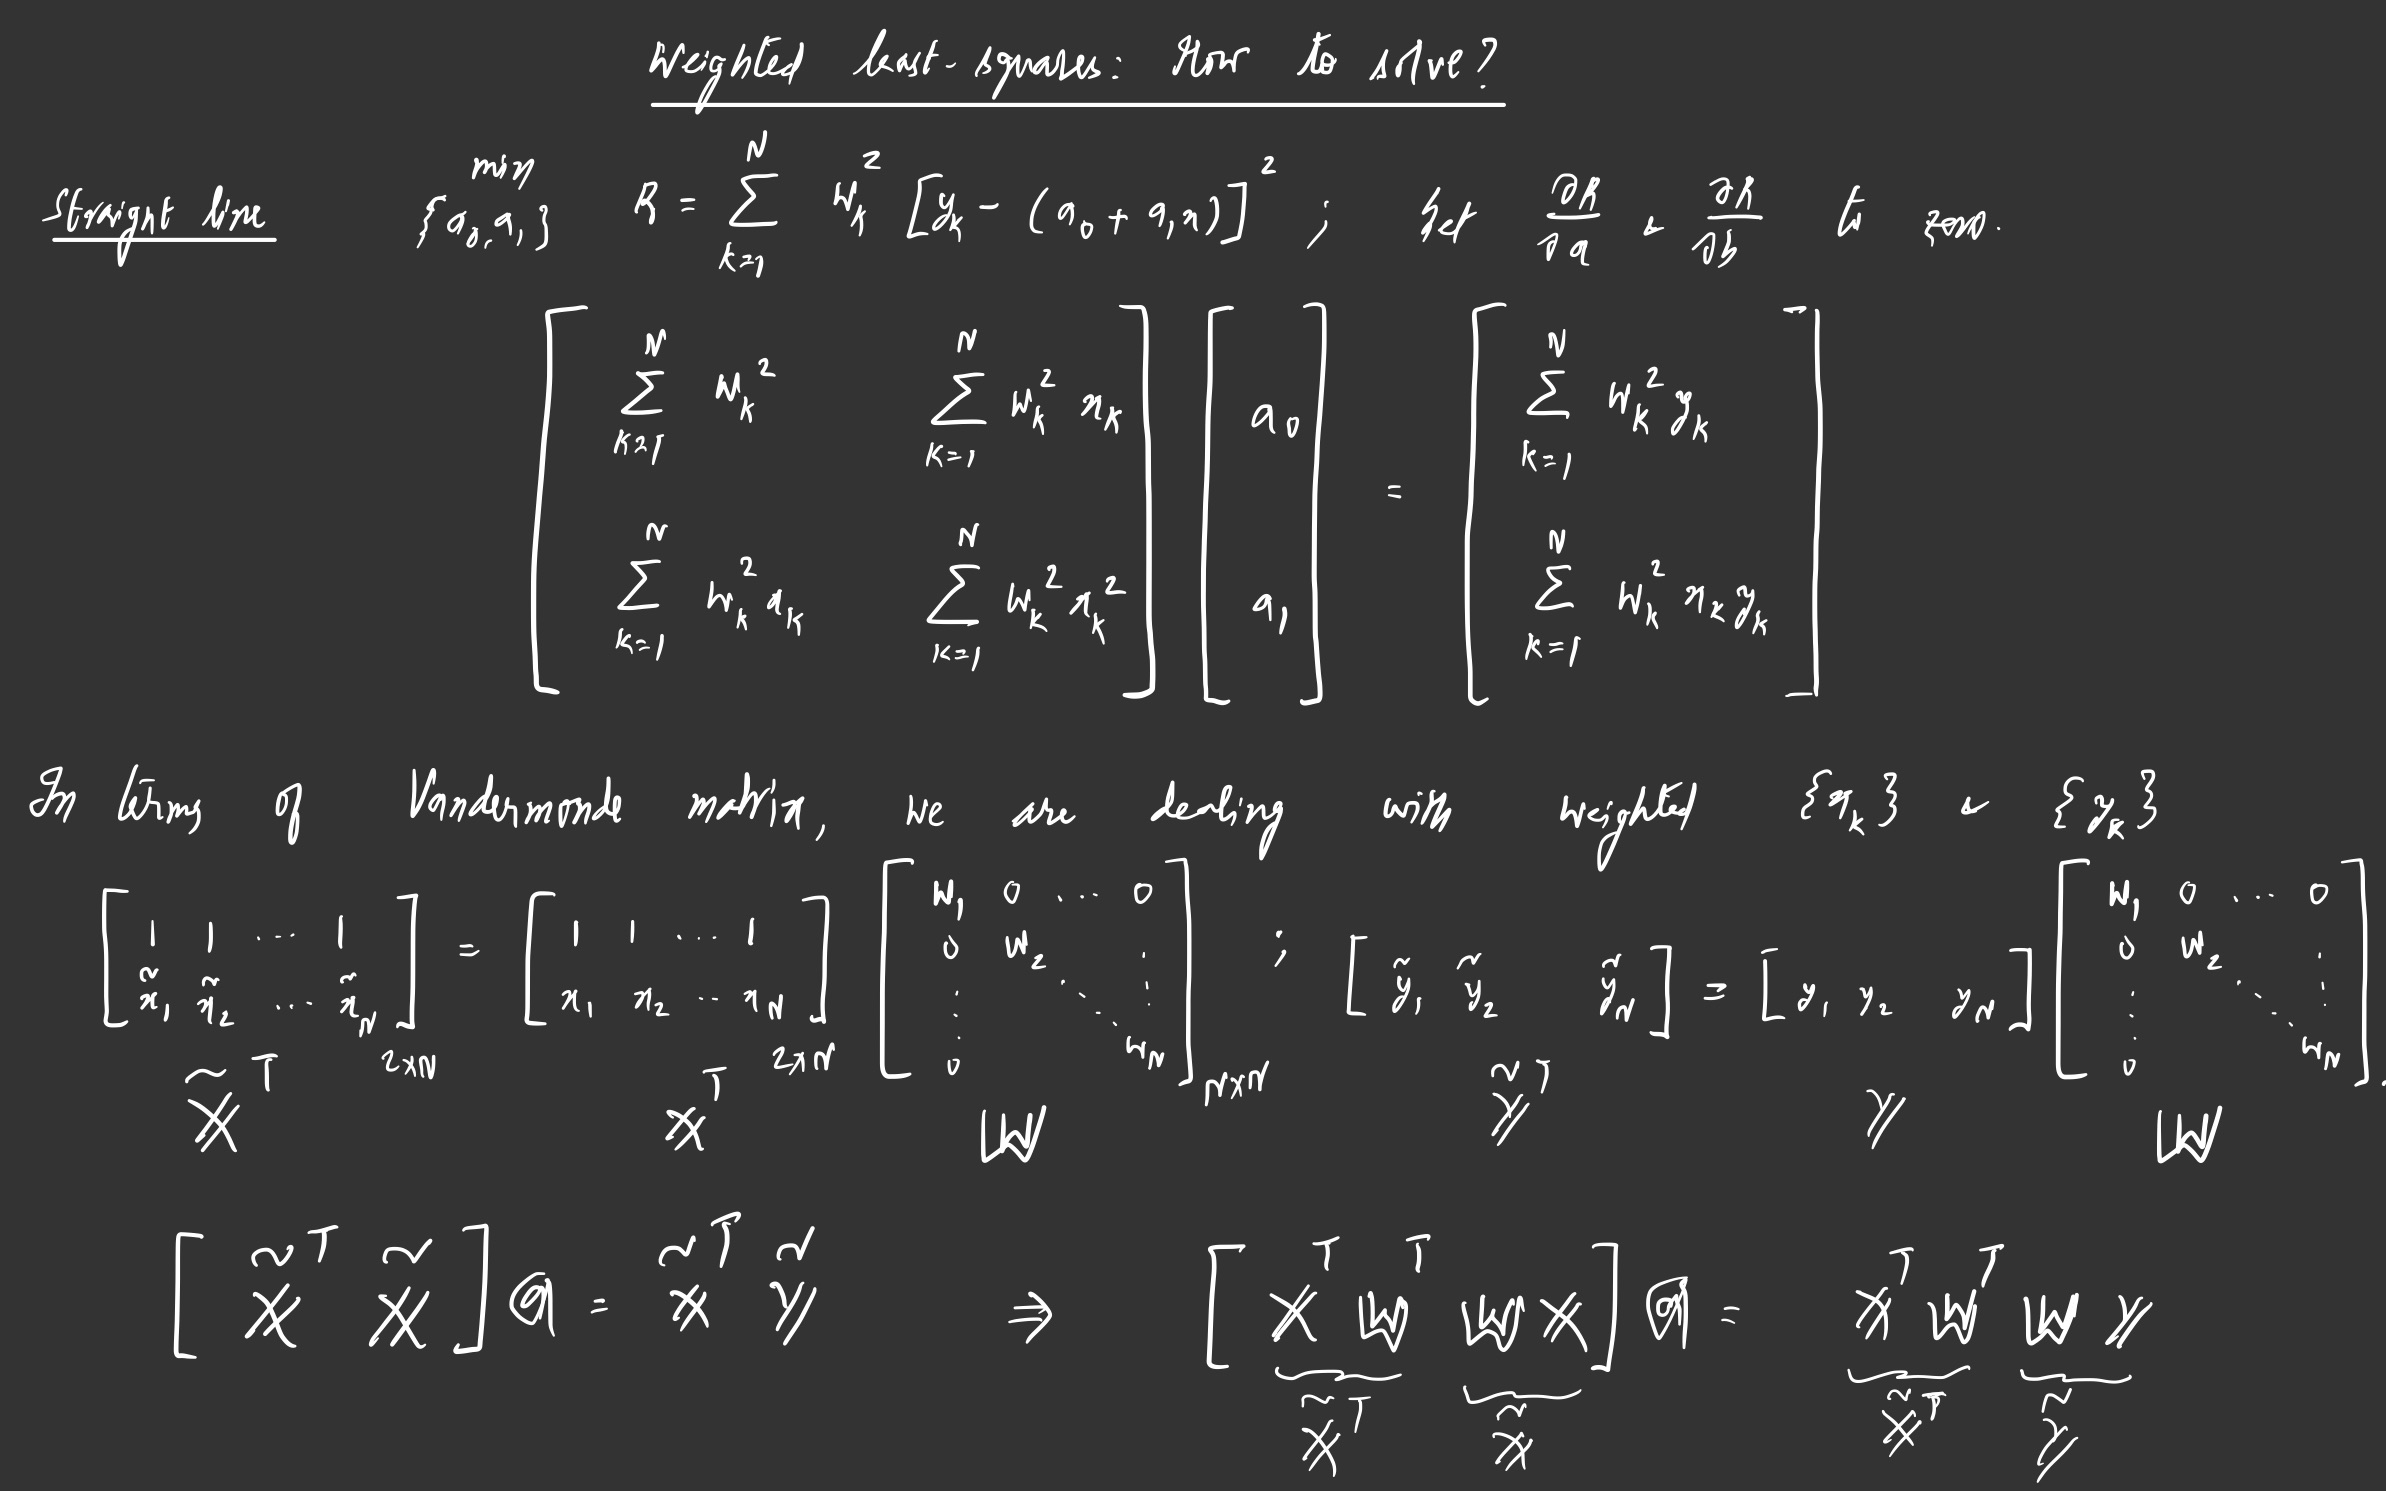 Weighted least-squares: How to solve?
Straight line min {a₀, a₁} R = ∑_{k=1}^{N} w_k² [y_k − (a₀ + a₁x)]² ; Set ∂R/∂a & ∂R/∂b to zero.
[ ∑_{k=1}^{N} w_k² ∑_{k=1}^{N} w_k² x_k ] [ a₀ ] = [ ∑_{k=1}^{N} w_k² y_k ]
[ ∑_{k=1}^{N} w_k² x_k ∑_{k=1}^{N} w_k² x_k² ] [ a₁ ] [ ∑_{k=1}^{N} w_k² x_k y_k ]
In terms of Vandermonde matrix, we are dealing with weighted {x_k} & {y_k}
[ 1 1 ... 1 ; x̃₁ x̃₂ ... x̃_N ]_{2×N} = [ 1 1 ... 1 ; x₁ x₂ ... x_N ]_{2×N} [ w₁ 0 ... 0 ; 0 w₂ ... ; 0 w_N ]_{N×N} ; [ ỹ₁ ỹ₂ ỹ_N ] = [ y₁ y₂ y_N ] [ w₁ 0 ... 0 ; 0 w₂ ... ; 0 w_N ]
X̃ᵀ Xᵀ W Ỹᵀ Y W
[ X̃ᵀ X̃ ] a = X̃ᵀ Ỹ ⇒ [ Xᵀ Wᵀ W X ] a = Xᵀ Wᵀ W Y
X̃ᵀ X̃ X̃ᵀ Ỹ